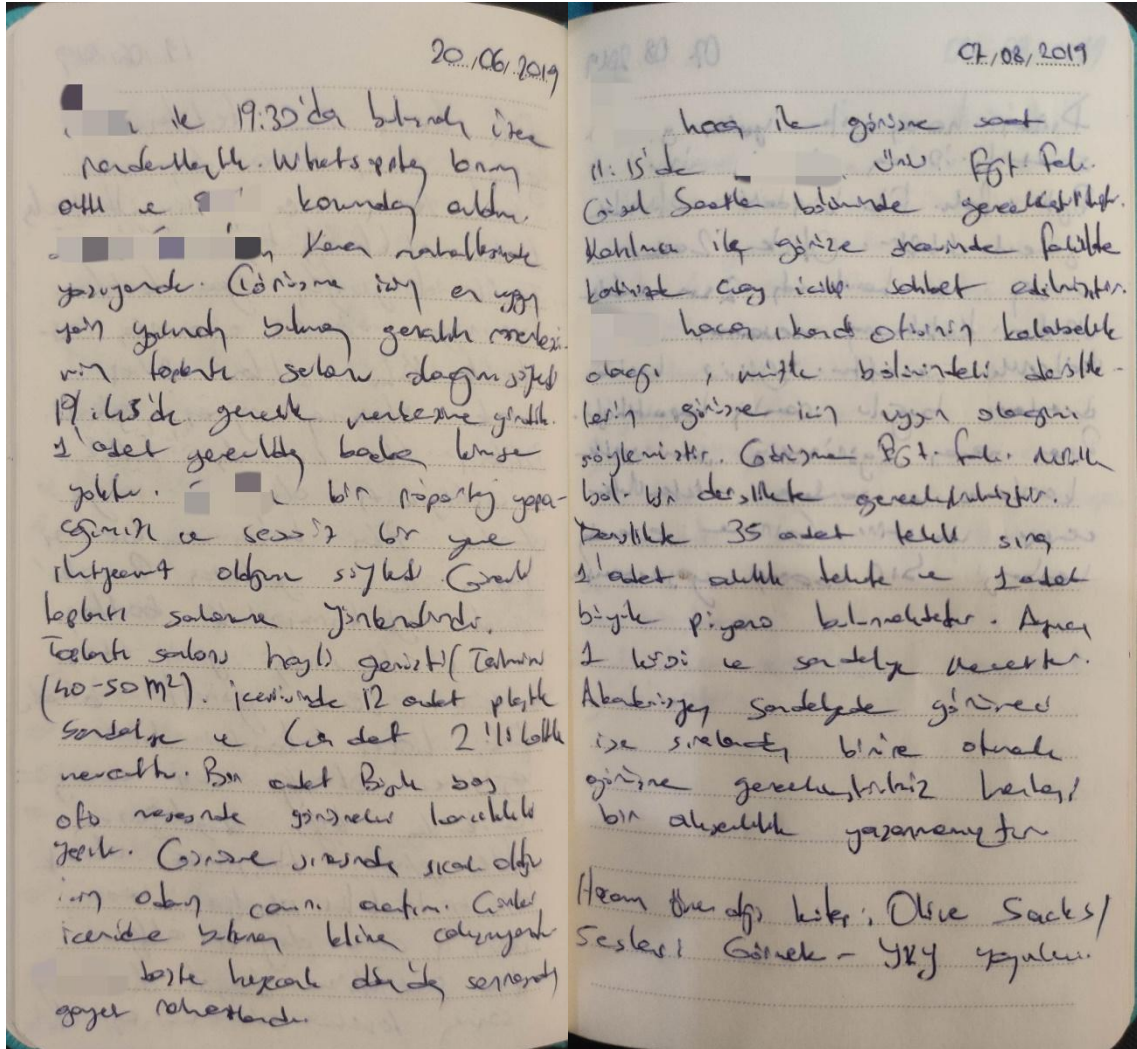 20/06/2019
ile 19:30'da buluşmak üzere
randevulaştık. Whatsapptan konum
attı ve konumdan aldım.
mahallesinde
yaşıyordu. Görüşme için en uygun
yerin yakında bulunan gençlik merkezi-
nin toplantı salonu olduğunu söyledi
19:45'de gençlik merkezine girdik.
1 adet görevliden başka kimse
yoktu. bir röportaj yapa-
cağımızı ve sessiz bir yere
ihtiyacımız olduğunu söyledi. Görevli
toplantı salonuna yönlendirdi.
Toplantı salonu hayli genişti (Tahmini
(40-50 m²). içerisinde 12 adet plastik
sandalye ve 2'li koltuk
mevcuttu. Bir adet Büyük boy
ofis masasında görüşmeleri karşılıklı
yaptık. Görüşme sırasında sıcak olduğu
için odanın camını açtım. Çünkü
içeride bulunan klima çalışmıyordu
başta heyecanlı olsa da sonrasında
gayet rahatlandı.
07/08/2019
hoca ile görüşme saat
11:15'de Üni Eğt. Fak.
Güzel Sanatlar bölümünde gerçekleştirilmiştir.
Katılımcı ile görüşme öncesinde fakülte
kantininde çay içilip sohbet edilmiştir.
hoca kendi ofisinin kalabalık
olacağı, müzik bölümündeki derslik-
lerin görüşme için uygun olacağını
söylemiştir. Görüşme Eğt. Fak. Müzik
böl. bir derslikte gerçekleştirilmiştir.
Derslikte 35 adet tekli sıra
1 adet akıllı tahta ve 1 adet
büyük piyano bulunmaktadır. Ayrıca
1 kürsü ve sandalye mevcuttur.
Akademisyen sandalyede görüşmeci
ise sıralardan birine oturarak
görüşme gerçekleştirilmiş herhangi
bir aksaklık yaşanmamıştır
Hocanın önerdiği kitap: Olive Sacks/
Sesleri Görmek - YKY yayınları.